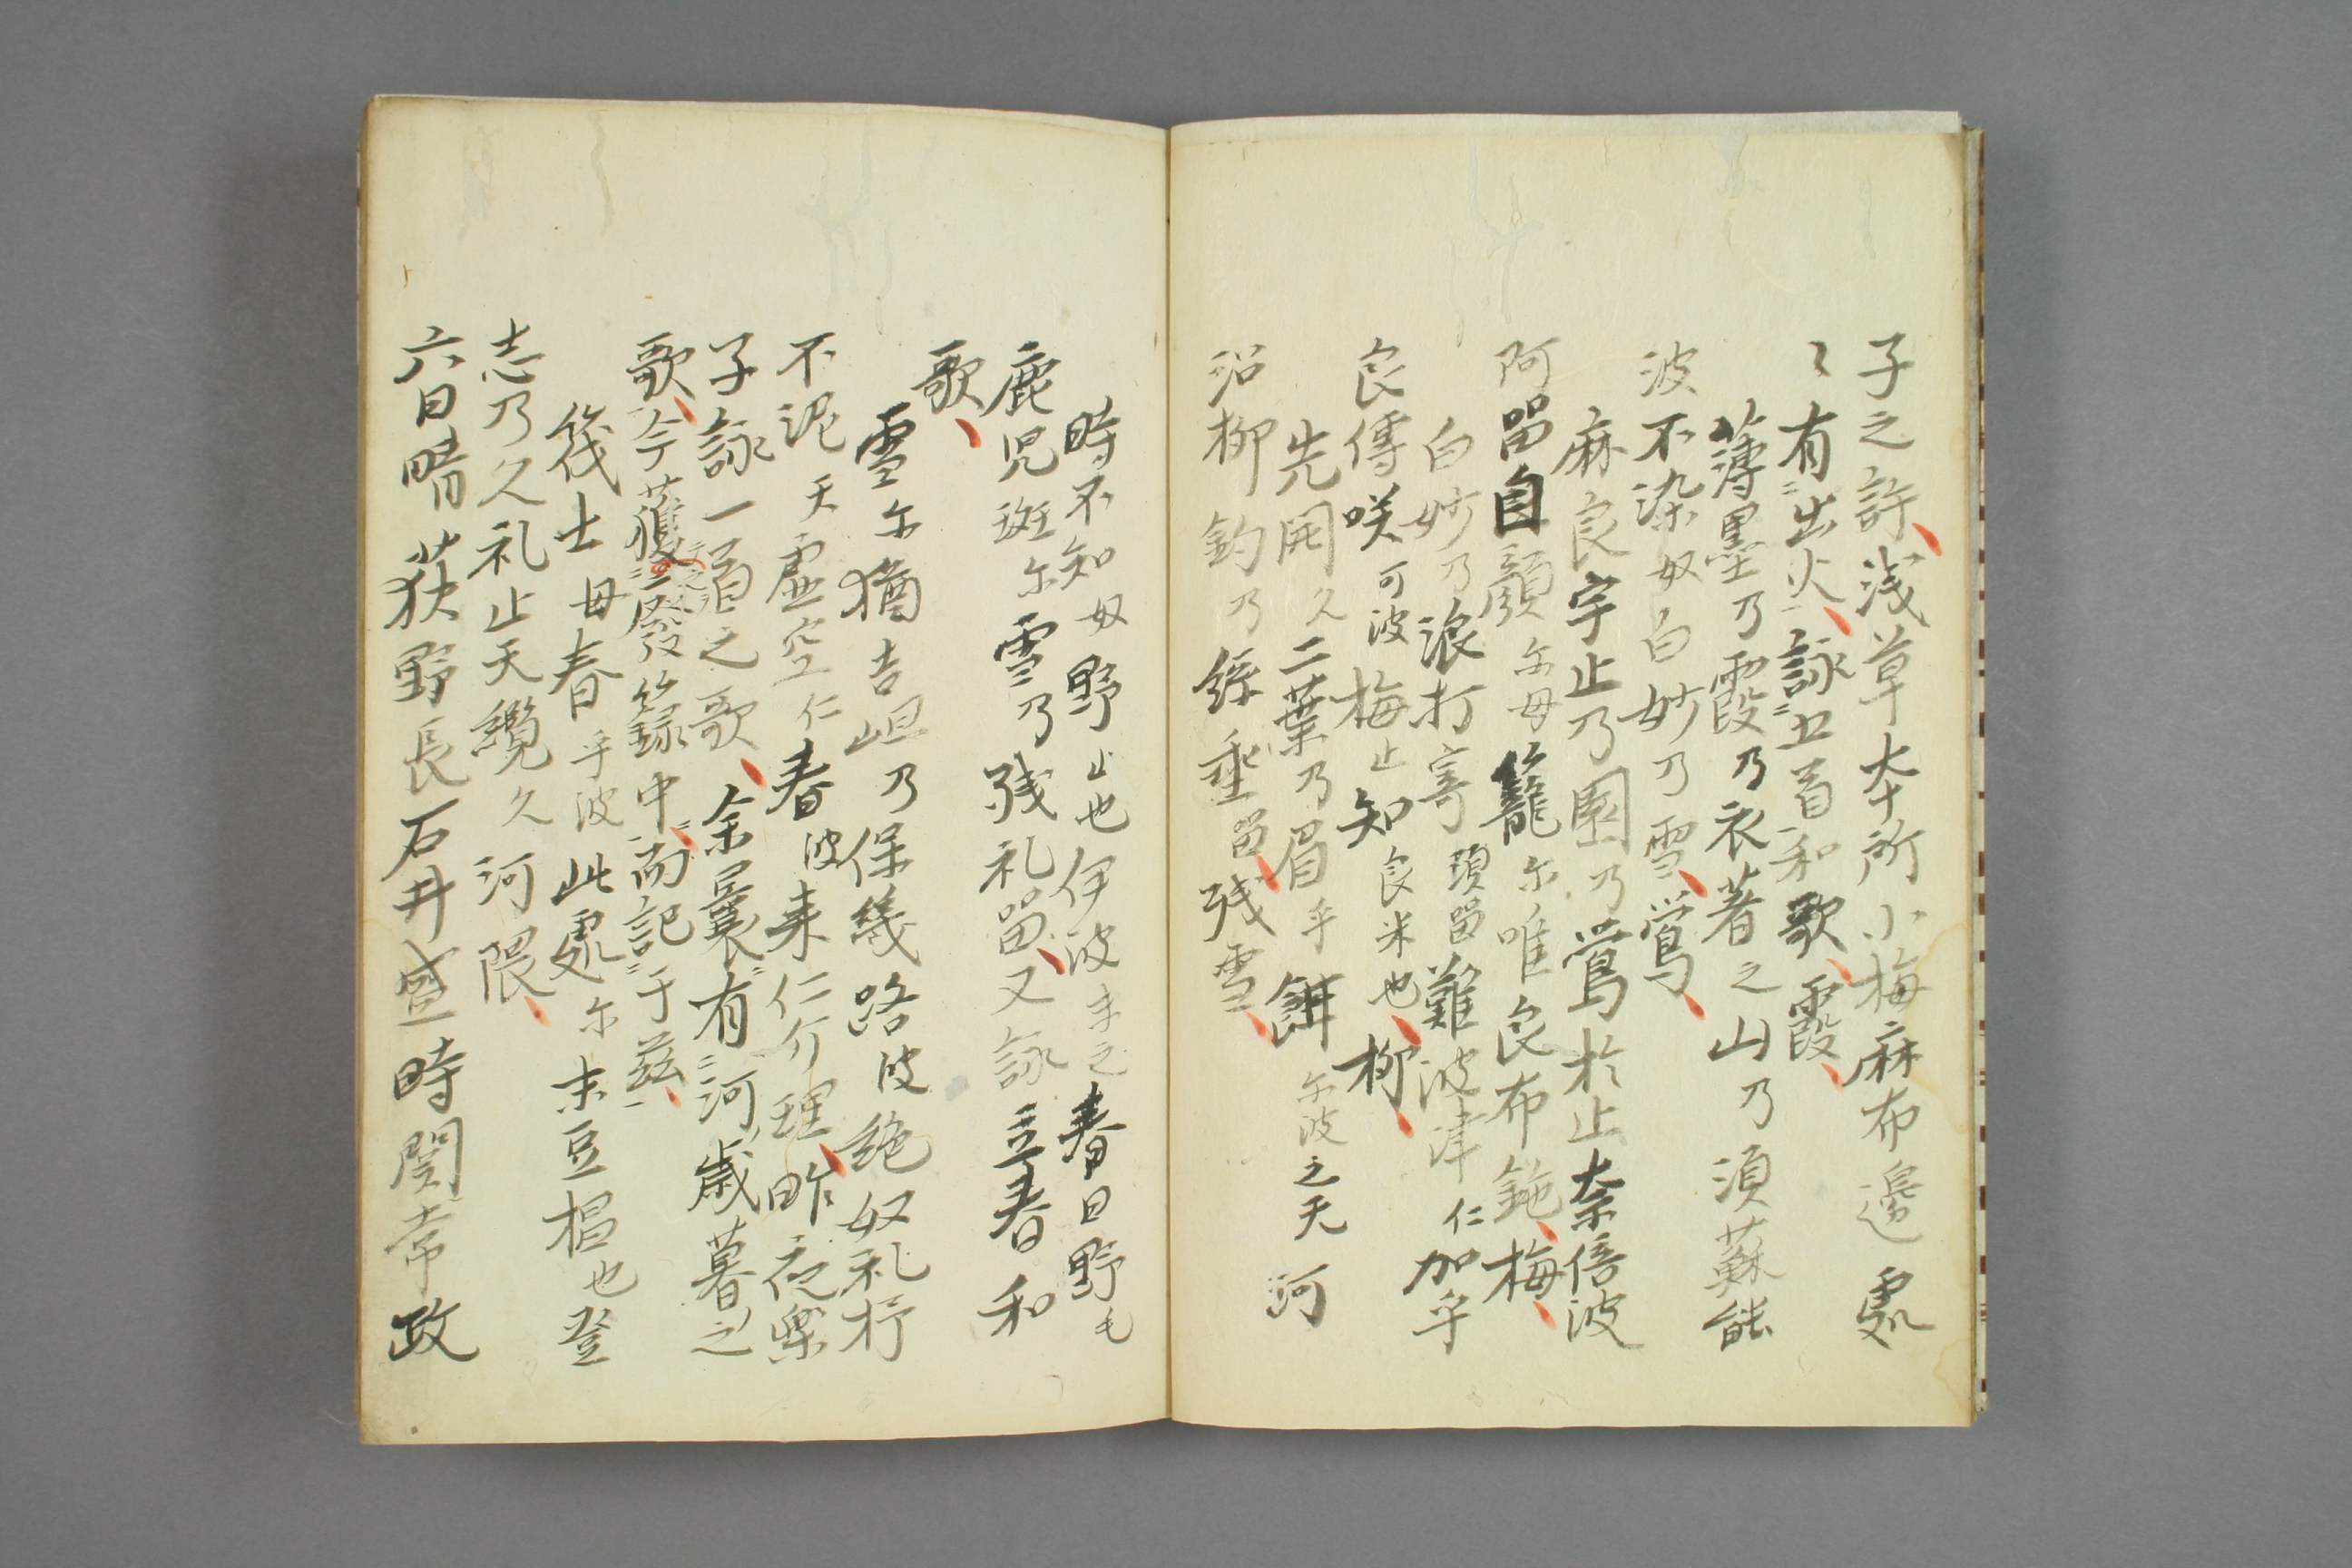 子之許浅草本所小梅麻布邊處
〻有出火詠五首和歌霞
薄墨乃霞乃衣著之山乃須蘇能
波不染奴白妙乃雪鴬
麻良宇止乃園乃鴬於止奈倍波
阿留自顔尓母籠尓唯良布鉇梅
白妙乃浪打寄須留難波津仁加乎
良傳咲可波梅止知良米也柳
先開久二葉乃眉乎餌尓波之天河
沼柳釣乃絲垂留残雪
時不知奴野山也伊波末之春日野毛
鹿児斑尓雪乃残礼留又詠立春和
歌
雪尓猶吉岨乃保幾路波絶奴礼杼
不泥天虚空仁春波来仁介理昨夜樂
子詠一首之歌余嚢有河歳暮之
歌今獲之廢籙中而記于茲
筏士毋春乎波此處尓末豆榲也登
志乃久礼止天纜久河隈
六日晴荻野長石井盛時関常政